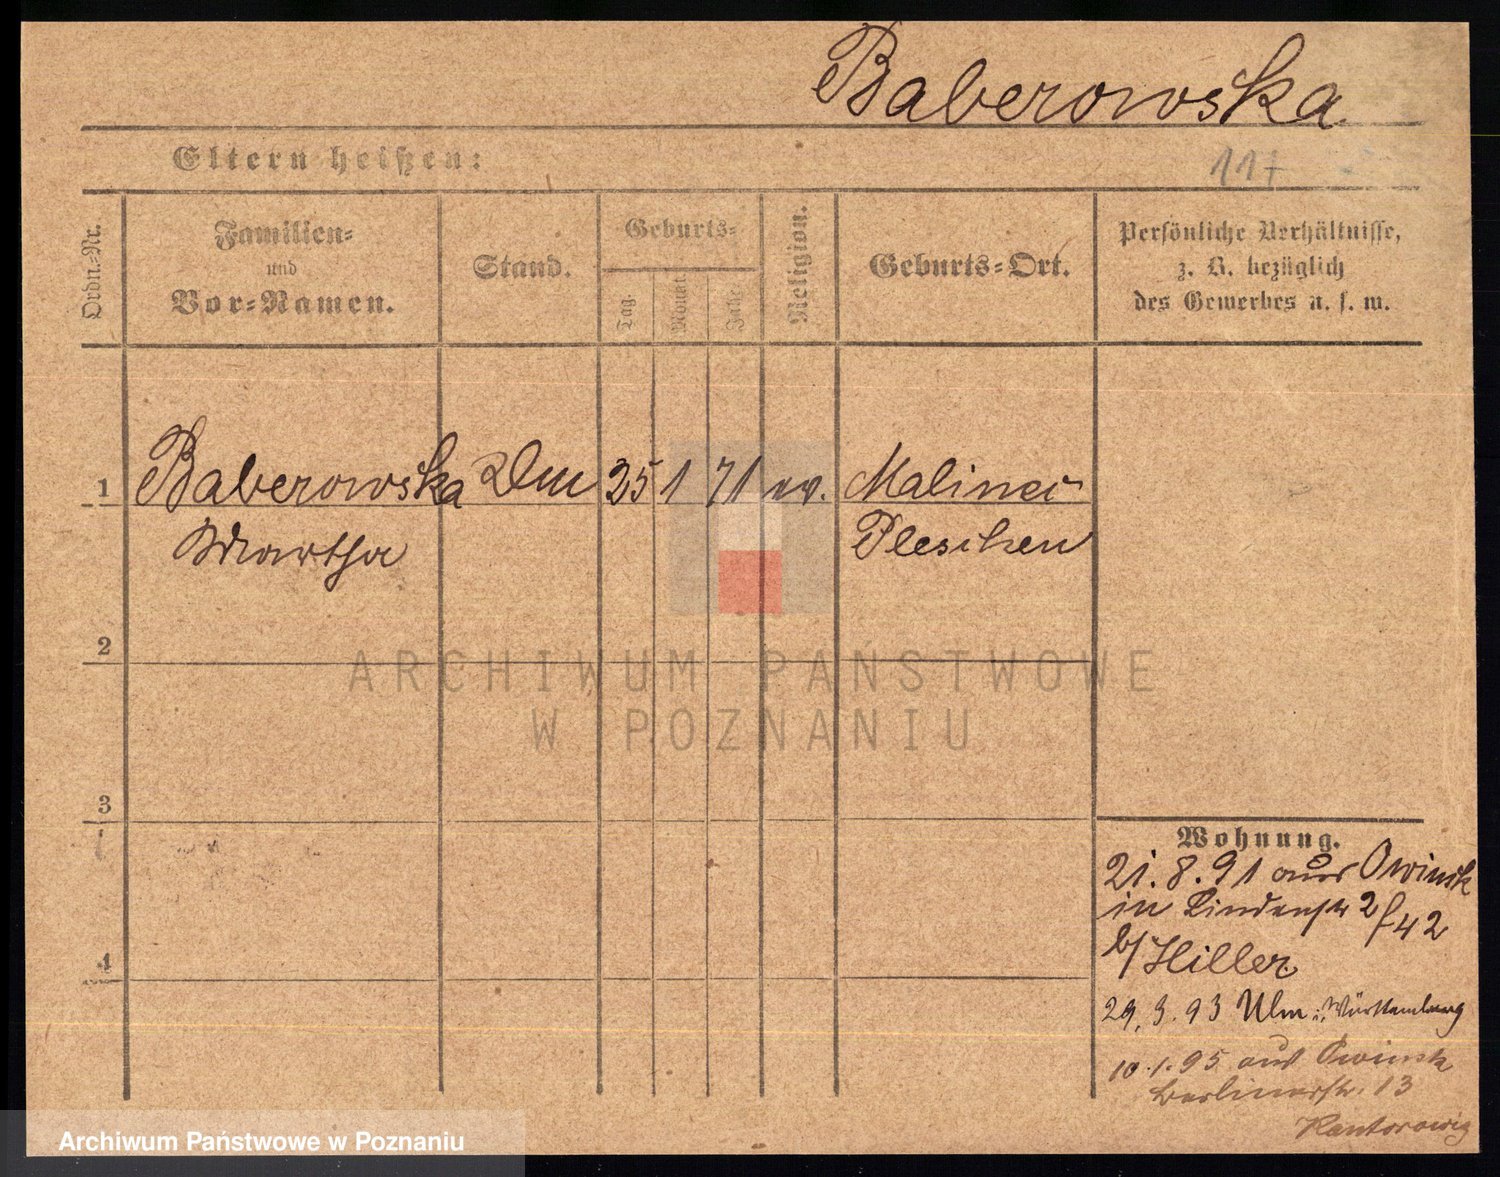 Baberowska
Eltern heißen:
117
Ordn.-Nr.
Familien-
und
Vor-Namen.
Stand.
Geburts-
Tag.
Monat.
Jahr.
Religion.
Geburts-Ort.
Persönliche Verhältnisse,
z. B. bezüglich
des Gewerbes u. s. w.
1 Baberowska 25 1 71 ev. Malinei-
Martha Pleschen
2
ARCHIWUM PAŃSTWOWE
W POZNANIU
3
4
Wohnung.
21.8.91 aus Owinsk
in Lindenstr 2 f 42
b/ Hiller
29.3.93 Ulm i. Württemberg
10.1.95 aus Owinsk
Berlinerstr. 13
Kantorowiz
Archiwum Państwowe w Poznaniu